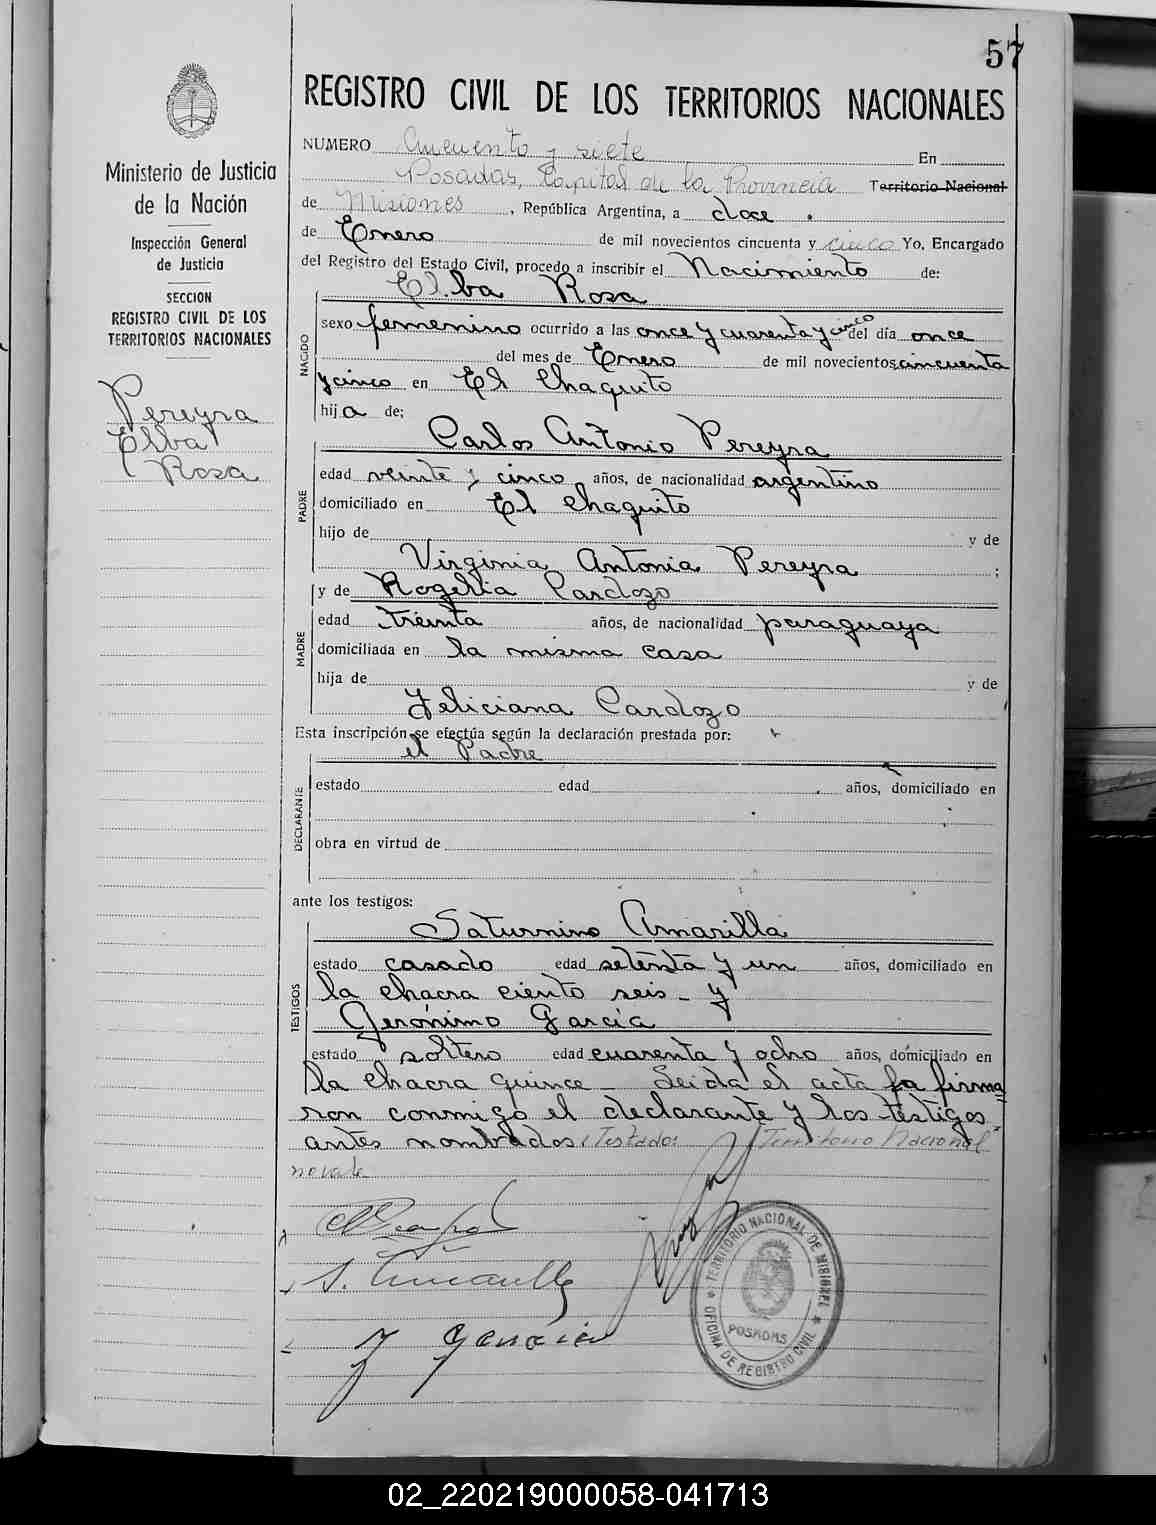 57
REGISTRO CIVIL DE LOS TERRITORIOS NACIONALES
Ministerio de Justicia
de la Nación
Inspección General
de Justicia
SECCION
REGISTRO CIVIL DE LOS
TERRITORIOS NACIONALES
Pereyra
Elba
Rosa
NUMERO Cincuenta y siete En
Posadas, Capital de la Provincia Territorio Nacional
de Misiones, República Argentina, a doce
de Enero de mil novecientos cincuenta y cinco Yo, Encargado
del Registro del Estado Civil, procedo a inscribir el Nacimiento de:
NACIDO
Elba Rosa
sexo femenino ocurrido a las once y cuarenta y cinco del día once
del mes de Enero de mil novecientos cincuenta
y cinco en El Chaquito
hija de;
PADRE
Carlos Antonio Pereyra
edad veinte y cinco años, de nacionalidad argentino
domiciliado en El Chaquito
hijo de y de
Virginia Antonia Pereyra ;
MADRE
y de Rogelia Cardozo
edad treinta años, de nacionalidad paraguaya
domiciliada en la misma casa
hija de y de
Feliciana Cardozo
Esta inscripción se efectúa según la declaración prestada por:
DECLARANTE
el Padre
estado edad años, domiciliado en
obra en virtud de
ante los testigos:
TESTIGOS
Saturnino Amarilla
estado casado edad setenta y un años, domiciliado en
la chacra ciento seis - y
Gerónimo García
estado soltero edad cuarenta y ocho años, domiciliado en
la chacra quince - Leida el acta la firma
ron conmigo el declarante y los testigos
antes nombrados, Testado: Territorio Nacional
no vale
S. Amarilla
J Garcia
TERRITORIO NACIONAL DE MISIONES
POSADAS
OFICINA DE REGISTRO CIVIL
02_220219000058-041713